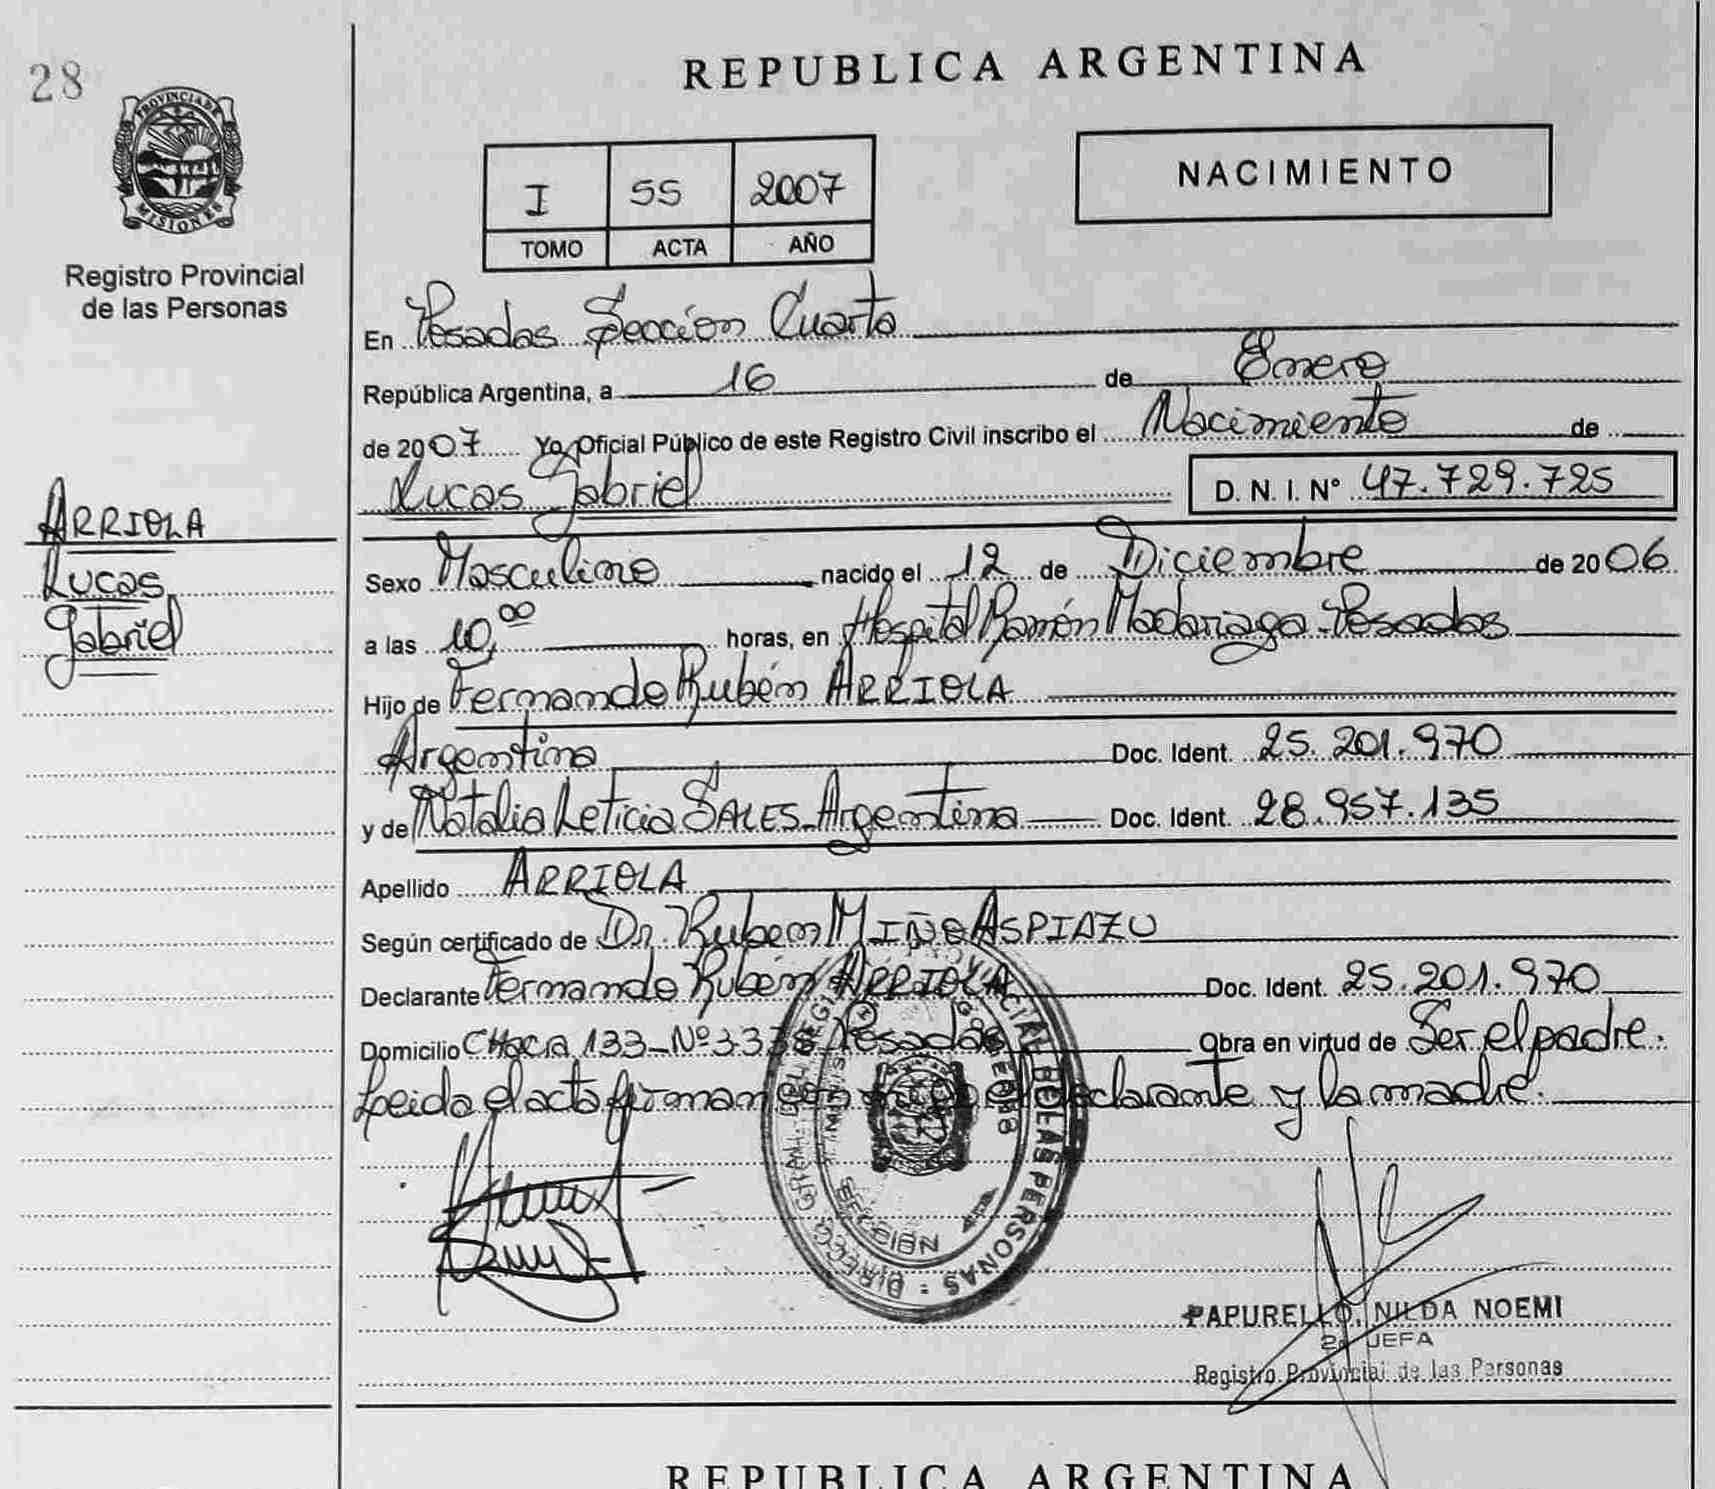 28
PROVINCIA DE
MISIONES
Registro Provincial
de las Personas
ARRIOLA
Lucas
Gabriel
REPUBLICA ARGENTINA
I 55 2007
TOMO ACTA AÑO
NACIMIENTO
En Posadas Sección Cuarta
República Argentina, a 16 de Enero
de 2007 Yo, Oficial Público de este Registro Civil inscribo el Nacimiento de
Lucas Gabriel D. N. I. Nº 47.729.725
Sexo Masculino nacido el 12 de Diciembre de 2006
a las 10,00 horas, en Hospital Ramón Madariaga - Posadas
Hijo de Fernando Rubén ARRIOLA
Argentino Doc. Ident. 25.201.970
y de Natalia Leticia SALES - Argentina Doc. Ident. 28.957.135
Apellido ARRIOLA
Según certificado de Dr. Ruben MIÑO ASPIAZU
Declarante Fernando Rubén ARRIOLA Doc. Ident. 25.201.970
Domicilio CHacra 133 - Nº 3338 Posadas Obra en virtud de Ser el padre.
Leida el acta firman el declarante y la madre.
PROVINCIAL DE LAS PERSONAS
SECCION
PAPURELLO, NILDA NOEMI
2a JEFA
Registro Provincial de las Personas
REPUBLICA ARGENTINA